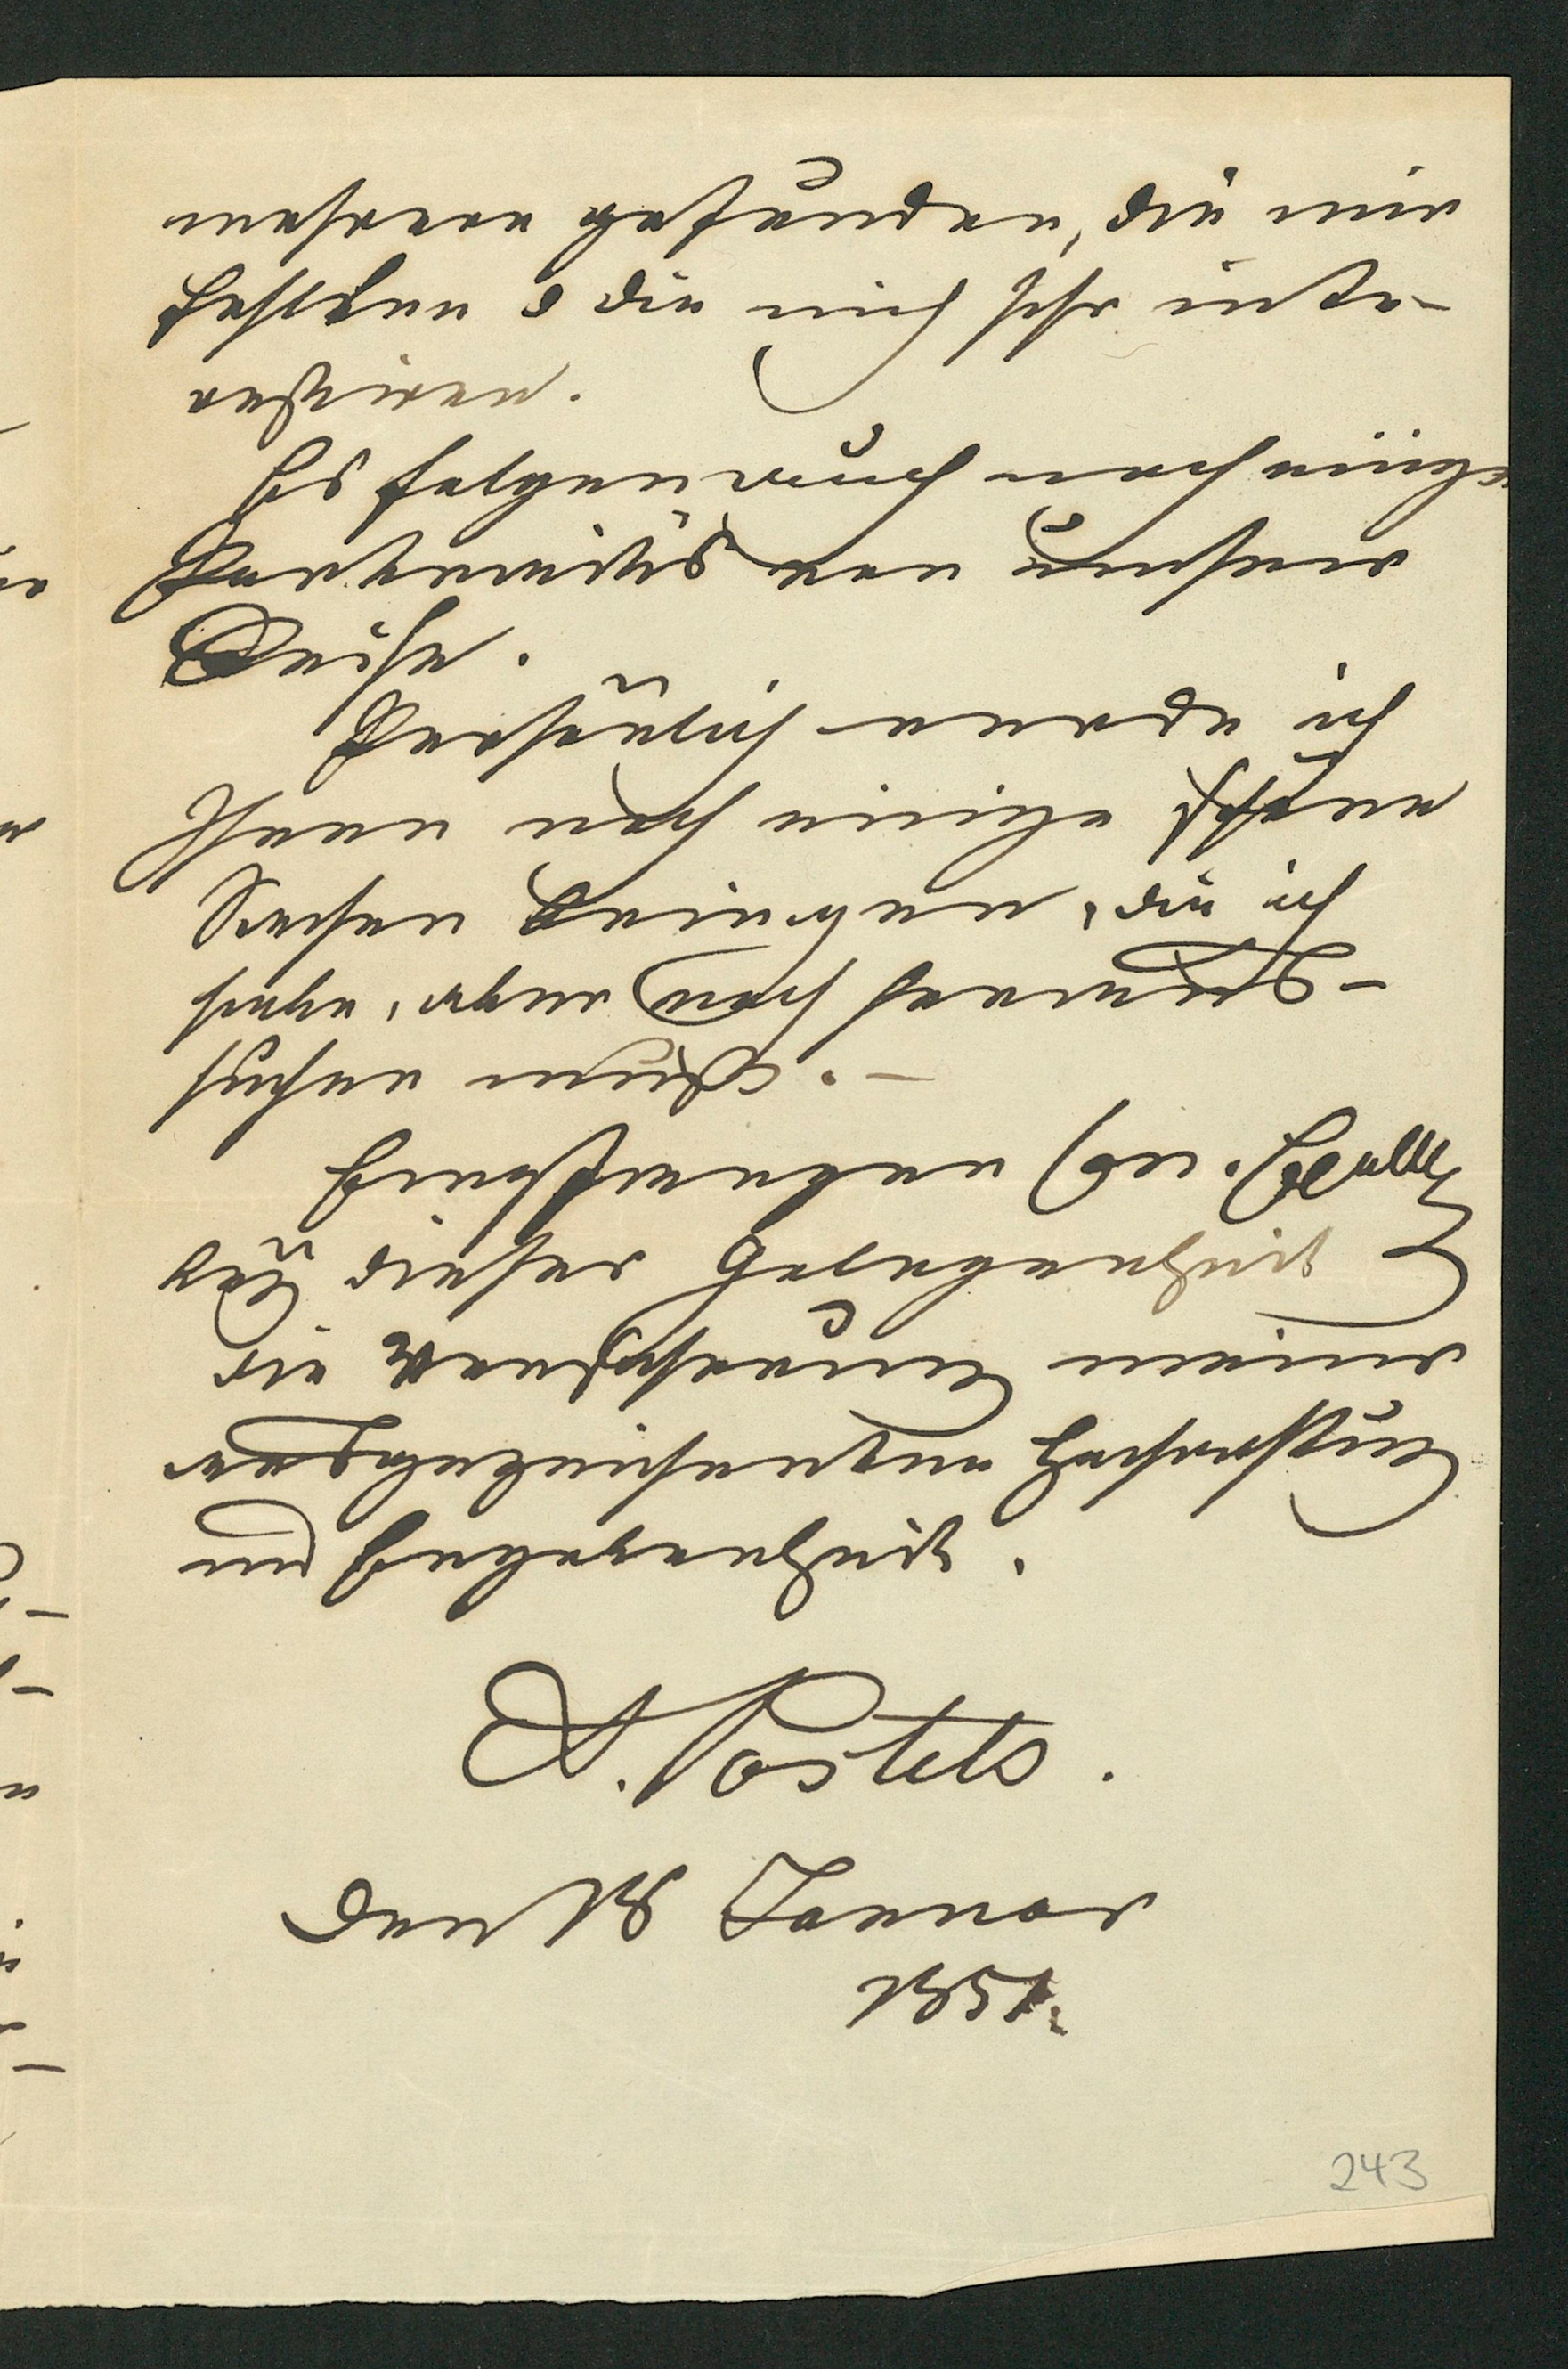 mehrere gefunden, die mir
fehlten & die mich sehr inte-
ressiren.
Es folgen auch noch einige
von unserer
Reise.
Persönlich werde ich
Ihnen noch einige schöne
Sachen bringen, die ich
habe, aber noch heraus-
suchen muß. —
Empfangen Ew.
bei dieser Gelegenheit
die Versicherung meiner
ausgezeichneten Hochachtung
und Ergebenheit.
A. Postels.
Den 18 Januar
1851.
243